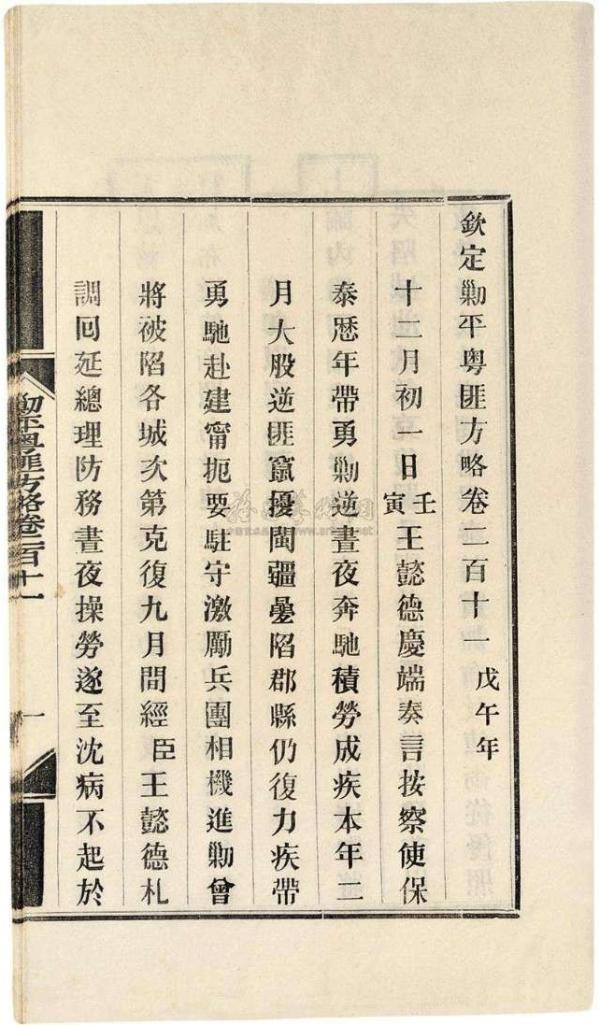 欽定勦平粵匪方略卷二百十一 戊午年
十二月初一日壬寅王懿德慶端奏言按察使保
泰歷年帶勇勦逆晝夜奔馳積勞成疾本年二
月大股逆匪竄擾閩疆疊陷郡縣仍復力疾帶
勇馳赴建甯扼要駐守激勵兵團相機進勦曾
將被陷各城次第克復九月間經臣王懿德札
調回延總理防務晝夜操勞遂至沈病不起於
勦平粵匪方略卷二百十一
一